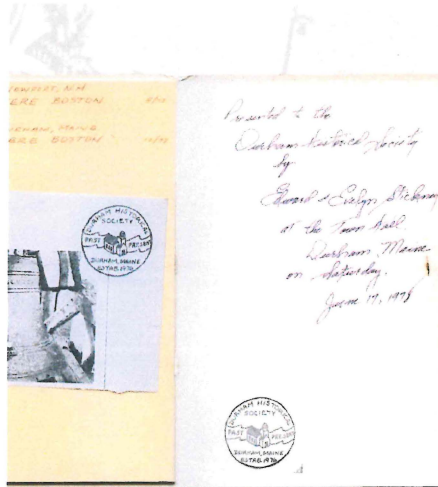 N.H
ERE BOSTON
MAINE
ERE BOSTON
DURHAM HISTORICAL
SOCIETY
PAST PRESENT
DURHAM, MAINE
ESTAB. 1974
Presented to the
Durham Historical Society
by
Edward & Evelyn Stickney
at the Town Hall
Durham Maine
on Saturday.
June 17, 1978
DURHAM HISTORICAL
SOCIETY
PAST PRESENT
DURHAM, MAINE